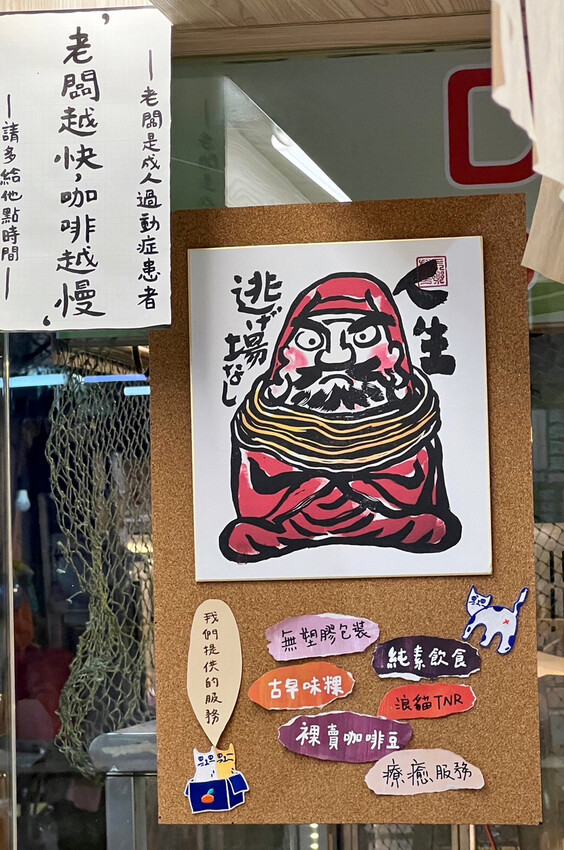 —老闆是成人過動症患者
'老闆越快，咖啡越慢'
—請多給他點時間—
人生
逃げ場なし
我們提供的服務
無塑膠包裝
純素飲食
古早味粿
浪貓TNR
裸賣咖啡豆
療癒服務